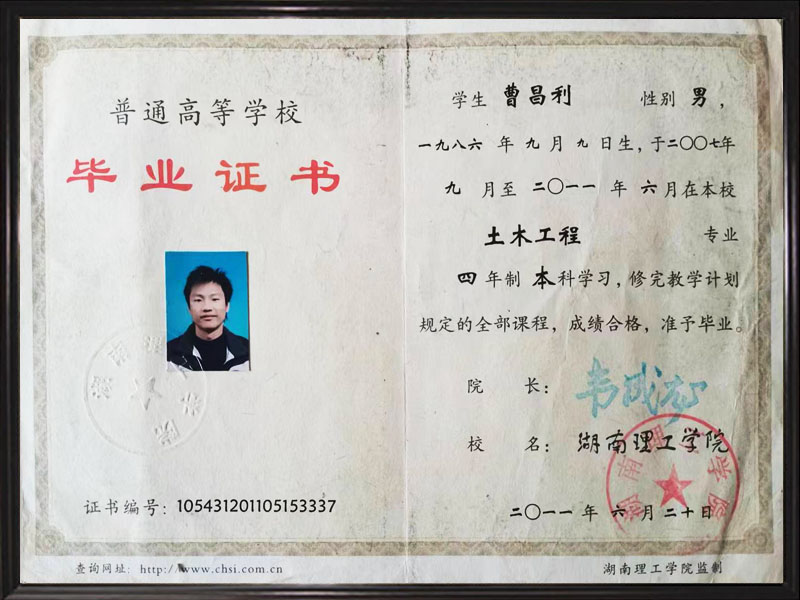 普通高等学校
毕业证书
证书编号：105431201105153337
查询网址：http://www.chsi.com.cn
学生 曹昌利 性别 男，
一九八六 年 九 月 九 日生，于二〇〇七年
九 月至 二〇一一 年 六 月在本校
土木工程 专业
四 年制 本 科学习，修完教学计划
规定的全部课程，成绩合格，准予毕业。
院 长：
校 名：湖南理工学院
湖南理工学院
二〇一一 年 六 月 二十 日
湖南理工学院监制